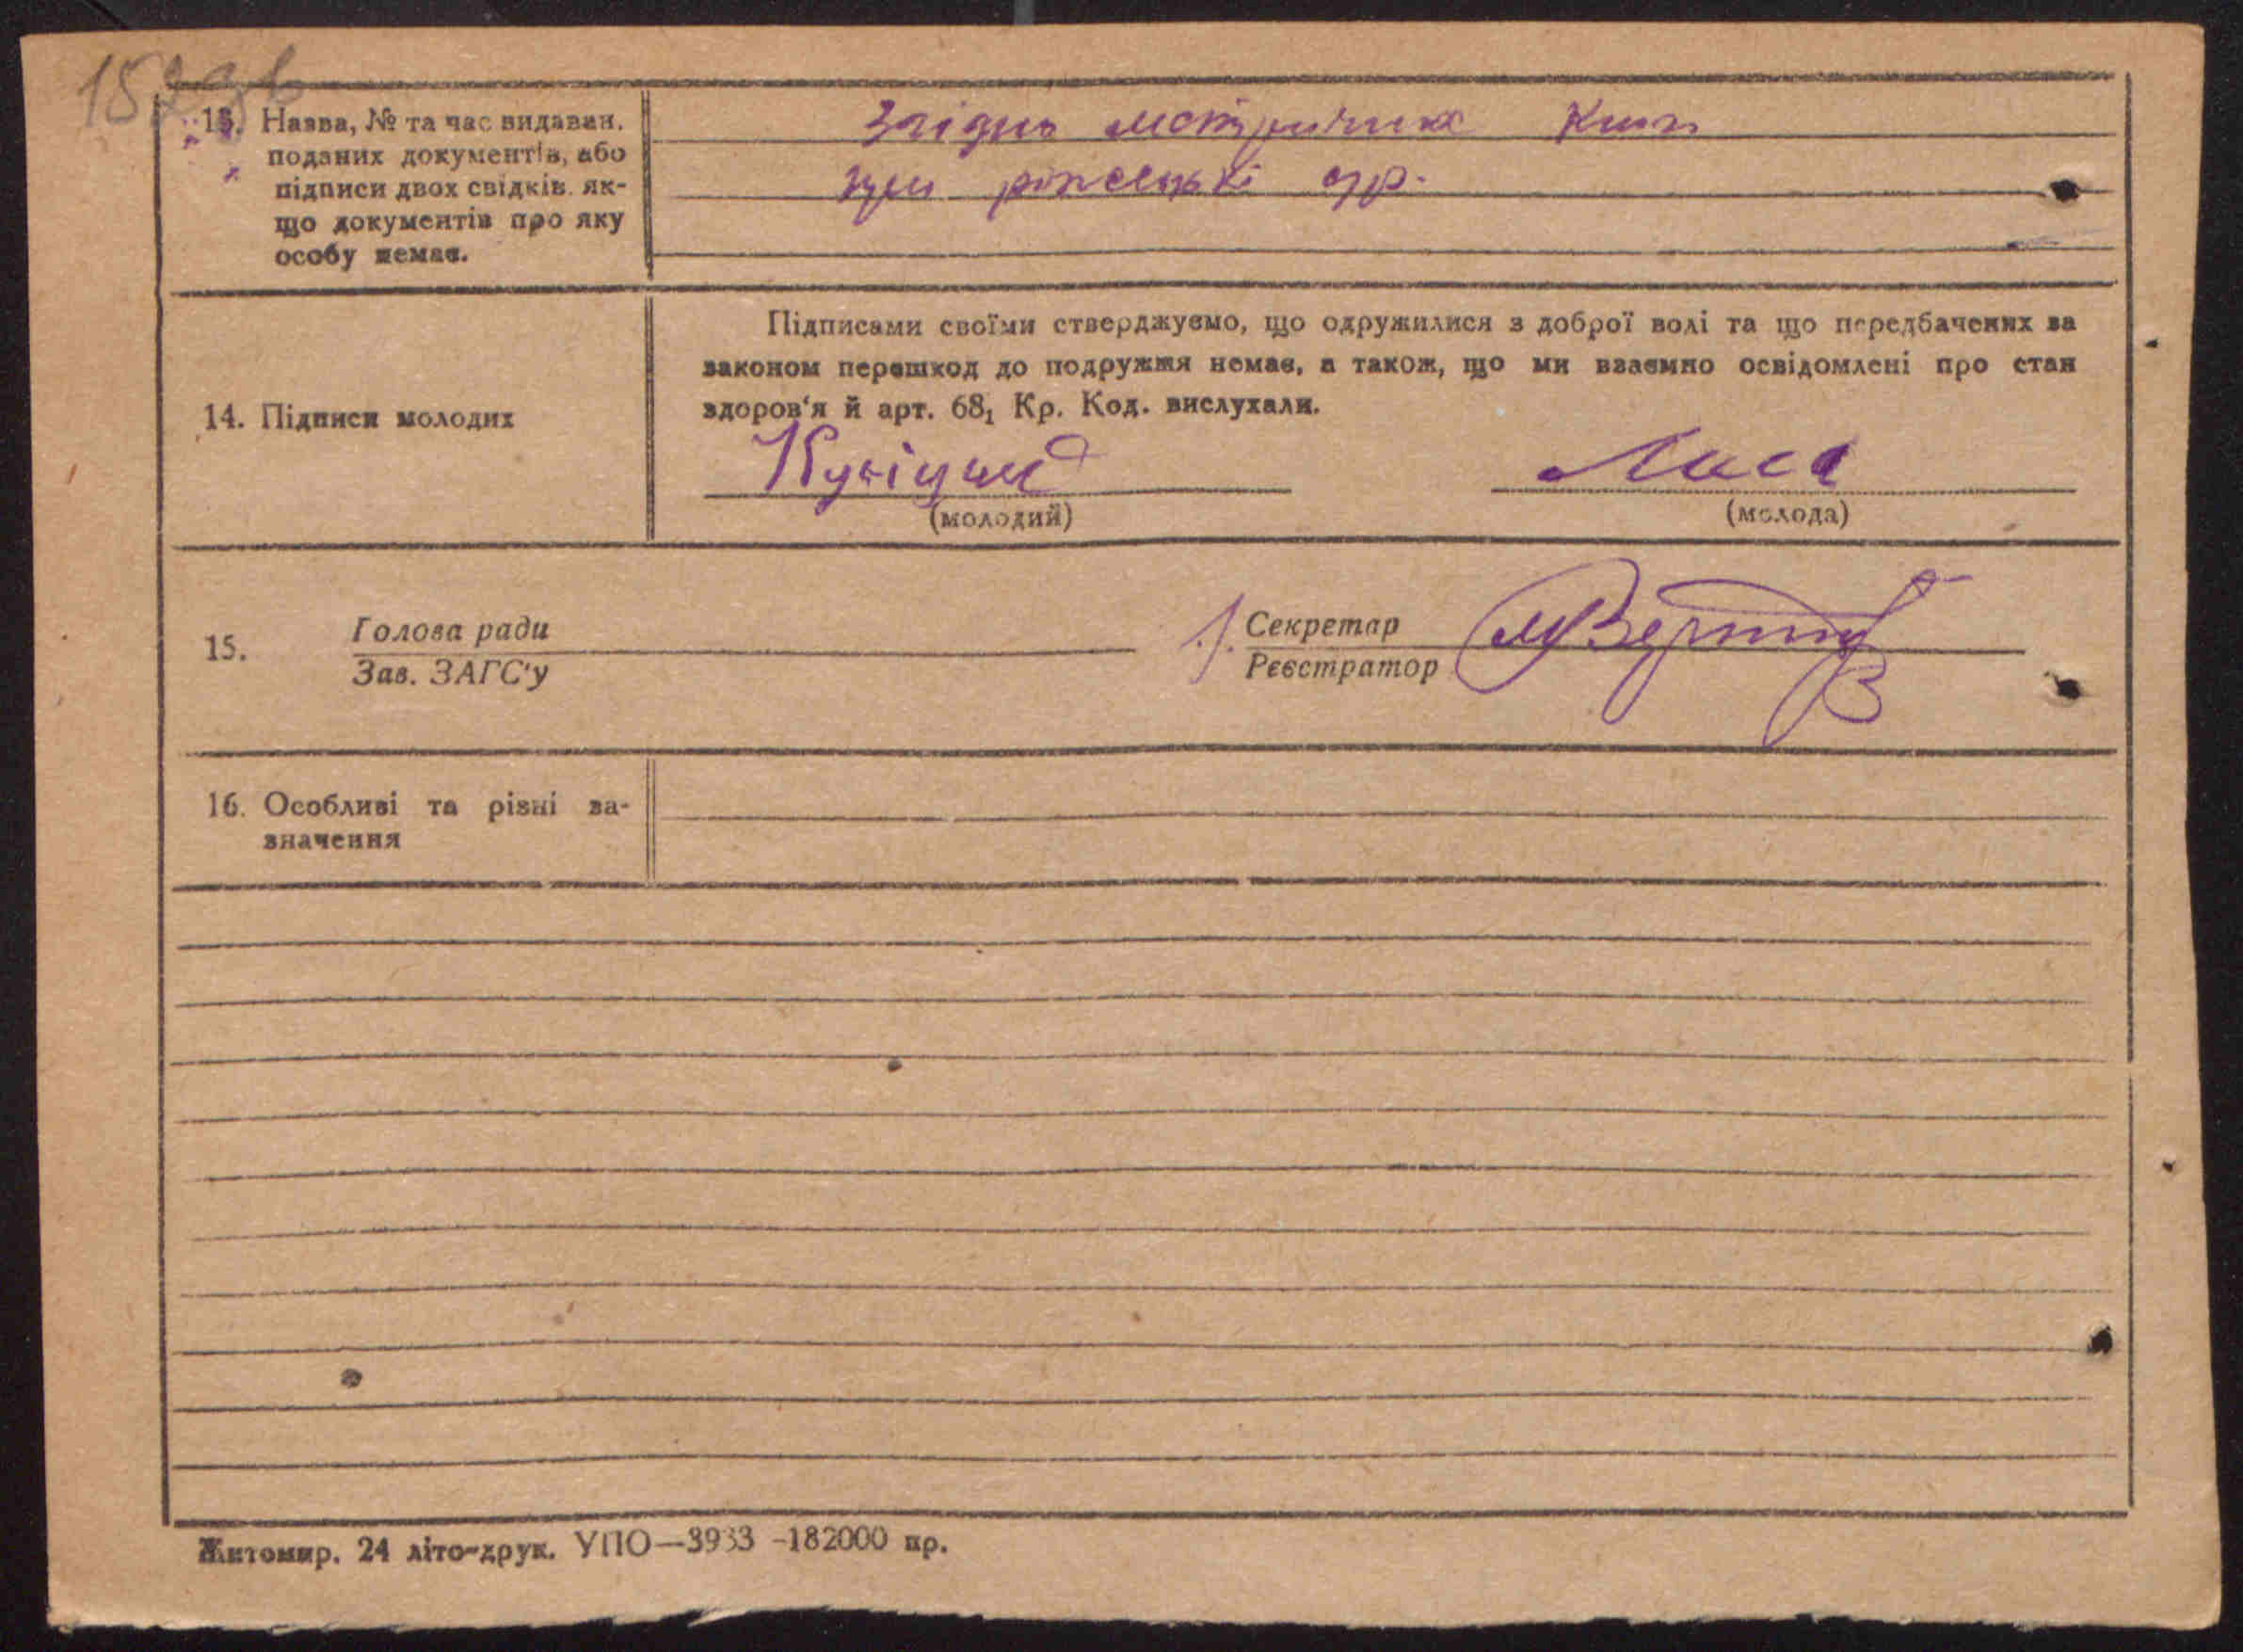 13. Назва, № та час видаван.
поданих документів, або
підписи двох свідків. як-
що документів про яку
особу немає.
Згідно метричних Книг
14. Підписи молодих
Підписами своїми стверджуємо, що одружилися з доброї волі та що передбачених за
законом перешкод до подружжя немає, а також, що ми взаємно освідомлені про стан
здоров'я й арт. 68₁ Кр. Код. вислухали.
Лиса
(молодий) (молода)
15. Голова ради
Зав. ЗАГС'у
Секретар
Реєстратор
16. Особливі та різні за-
значення
Житомир. 24 літо-друк. УПО—3933 -182000 пр.